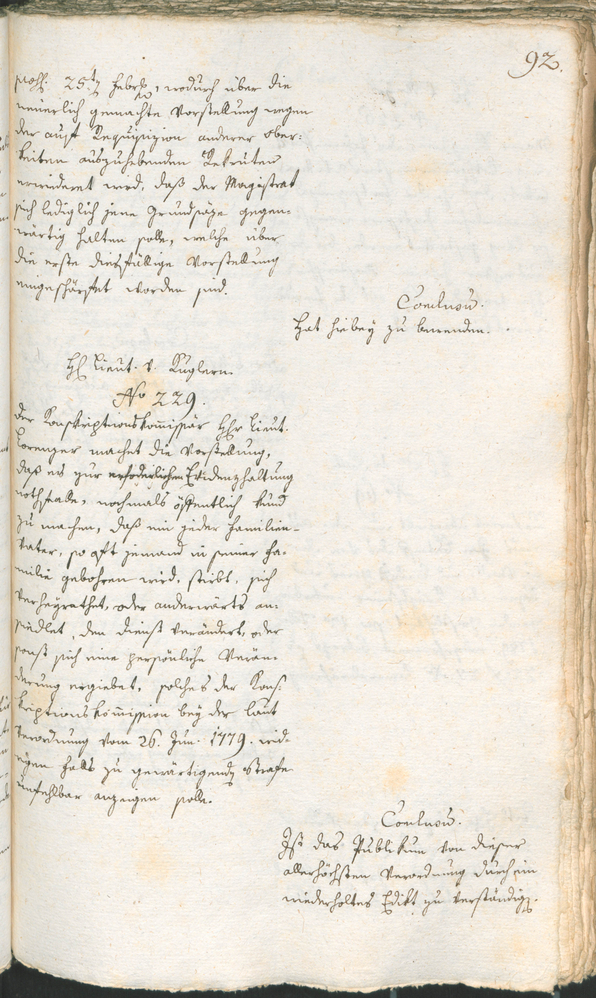 92.
präs. 25ten Febr., wodurch über die
neuerlich gemachte Vorstellung wegen
der auf Requisizion anderer Ober-
keiten auszuhebenden Rekruten
erwiederet wird, daß der Magistrat
sich lediglich jene Grundsäze gegen-
wärtig halten solle, welche über
die erste diesfällige Vorstellung
eingeschärfet worden sind.
Conclusum.
Hat hiebey zu bewenden.
H. Lieut. v. Kuglern.
No 229.
Der Konskriptionskom̄issär Hr. Lieut.
Lorenzer machet die Vorstellung,
daß es zur erforderlichen Evidenzhaltung
nöthig falle, nochmals öffentlich kund
zu machen, daß ein jeder Familien-
vater, so oft jemand in seiner Fa-
milie gebohren wird, stirbt, sich
verheyrathet, oder anderwärts an-
siedlet, den Dienst verändert, oder
sonst sich eine persönliche Verän-
derung ergiebet, solches der Kons-
kriptionskom̄ission bey der laut
Verordnung vom 26. Jun. 1779. wid-
rigen Falls zu gewärtigenden Strafe
unfehlbar anzeigen solle.
Conclusum.
Ist das Publikum von dieser
allerhöchsten Verordnung durch ein
wiederholtes Edikt zu verständigen.